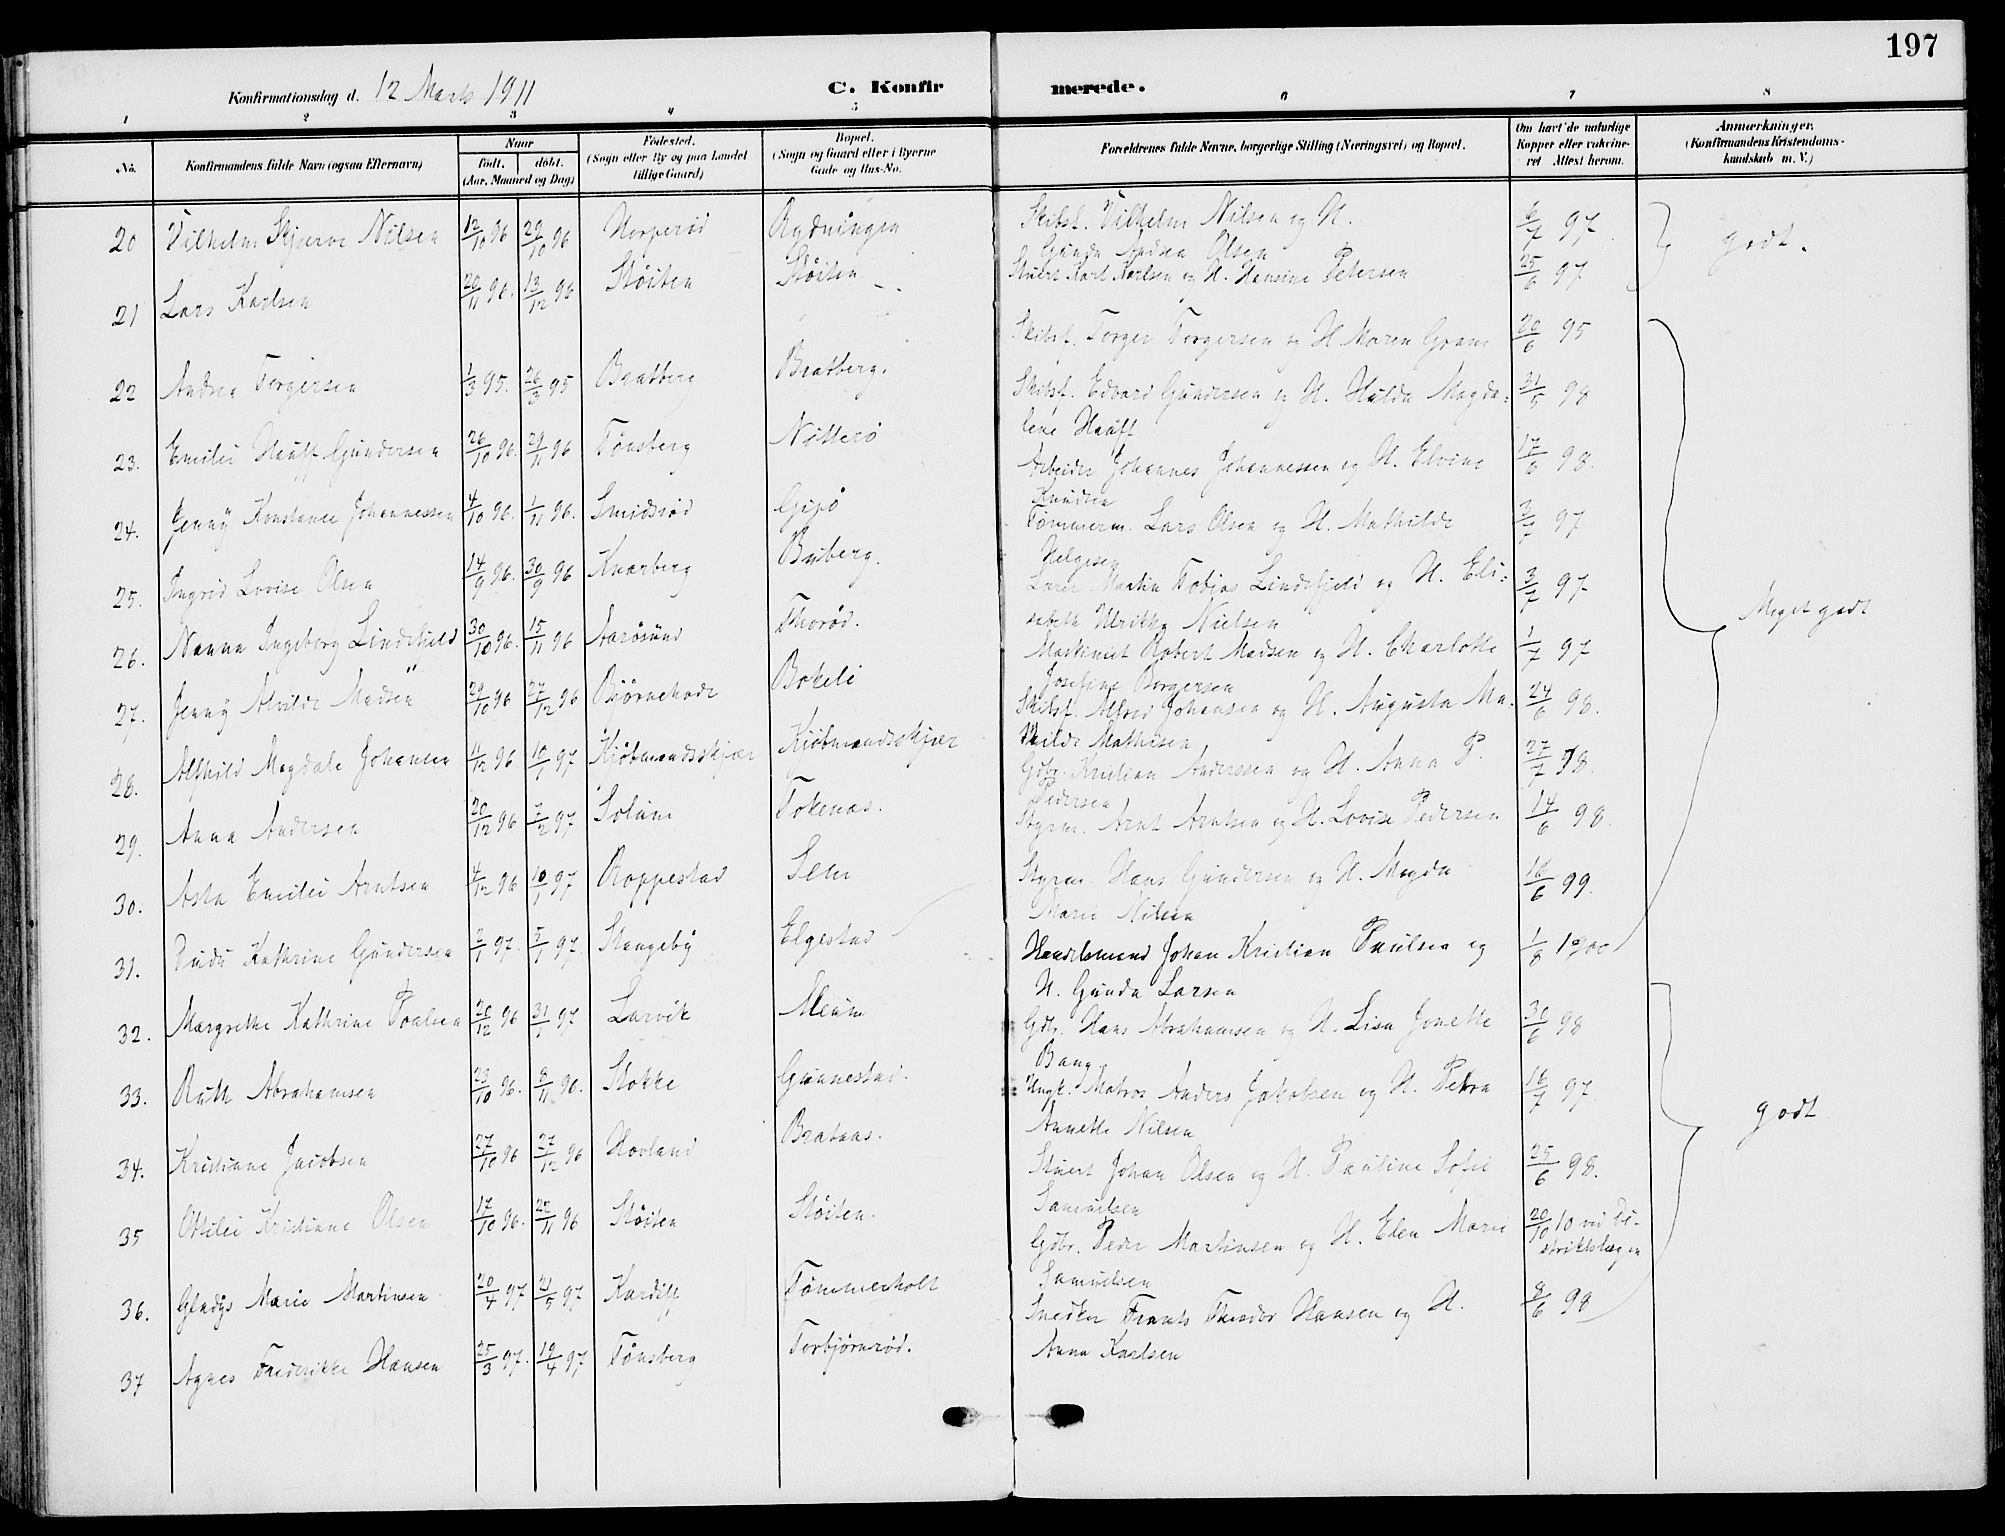 197
Konfirmationsdag d. 12 Marts 1911 C. Konfirmerede.
1 2 3 4 5 6 7 8
No. Konfirmandens fulde Navn (ogsaa Efternavn) Naar født. døbt. (Aar, Maaned og Dag) Fødested. (Sogn eller By og paa Landet tillige Gaard) Bopæl. (Sogn og Gaard eller i Byerne Gade og Hus-No. Forældrenes fulde Navne, borgerlige Stilling (Næringsvei) og Bopæl. Om havt de naturlige Kopper eller vaccineret Attest herom. Anmærkninger. (Konfirmandens Kristendomskundskab m. V.)
20 Vilhelm Skjerve Nilsen 12/10 96 29/10 96 Horperød Rydningen Skibsf. Vilhelm Nilsen og H. 6/7 97 godt.
Gunda Andrea Olsen
21 Lars Karlsen 20/11 96. 13/12 96 Støiten Støiten Stuert Karl Karlsen og H. Hansine Petersen 25/6 97
22 Andrea Torgersen 1/3 95. 26/3 95 Bratberg Bratberg. Skibsf. Torger Torgersen og H. Maren Gram 20/6 95
23. Emilie Hauff Gundersen 26/10 96. 29/11 96 Tönsberg Nötterö Skibsf. Edvard Gundersen og H. Hulda Magda=
lene Hauff 31/5 98
24. Jenny Konstance Johannessen 4/10 96. 1/11 96. Smidsrød Gipö Arbeider Johannes Johannessen og H. Elvine
Knudsen 17/6 98.
25. Ingrid Lovise Olsen 14/9 96. 30/9 96 Knarberg Buberg. Tømmerm. Lars Olsen og H. Mathilde
Helgesen 3/7 97
26. Nanna Ingeborg Lindefjeld 30/10 96. 15/11 96 Aarösund Thorød. Lærer Martin Tobias Lindefjeld og H. Eli=
sabeth Ulrikke Nielsen 3/7 97 Meget godt
27. Jenny Alvilde Madsen 29/10 96 27/12 96 Bjørnehode Bokeli Maskinist Robert Madsen og H. Charlotte
Josefine Borgersen 1/7 97
28. Alfhild Magdale Johansen 11/12 96 10/1 97 Kjöbmandsskjær Kjöbmandsskjær Skibsf. Alfred Johansen og H. Augusta Ma-
thilde Mathisen 24/6 98.
29. Anna Andersen 20/12 96 7/2 97 Solum Tokenas. Gdbr. Kristian Anderssen og H. Anna P.
Pedersen 27/7 98.
30. Asta Emilie Arntsen 4/12 96 10/1 97 Roppestad Sem Styrm. Arnt Arntsen og H. Lovise Pedersen 14/6 98.
31. Dudu Kathrine Gundersen 2/1 97. 5/1 97. Stangeby Elgestad Styrm. Hans Gundersen og H. Magda
Marie Nilsen 16/6 99.
32. Margrethe Kathrine Poulsen 20/12 96 31/1 97 Larvik Meum Handelsmand Johan Kristian Paulsen og
H. Gunda Larsen 1/8 1900
33. Ruth Abrahamsen 23/10 96. 8/11 96. Stokke Gunnestad. Gdbr. Hans Abrahamsen og H. Lisa Jonette
Bang 30/6 98
34. Kristiane Jacobsen 27/10 96 27/12 96 Hovland Brataas. Ungk. Matros Anders Jakobsen og H. Petra
Annette Nilsen 16/7 97 godt
35 Ottilie Kristiane Olsen 17/10 96. 22/11 96 Støiten Støiten. Stuert Johan Olsen og H. Pauline Sofie
Samuelsen 25/6 98.
36. Gladys Marie Martinsen 20/4 97 21/5 97 Kardiff Tömmerholt Gdbr. Peder Martinsen og H. Elen Marie
Samuelsen 20/10 10 ved Di-
striktslægen
37 Agnes Frederikke Hansen 25/3 97. 19/4 97 Tönsberg Torbjørnrød. Snedker Frants Theodor Hansen og H.
Anna Karlsen 8/6 98